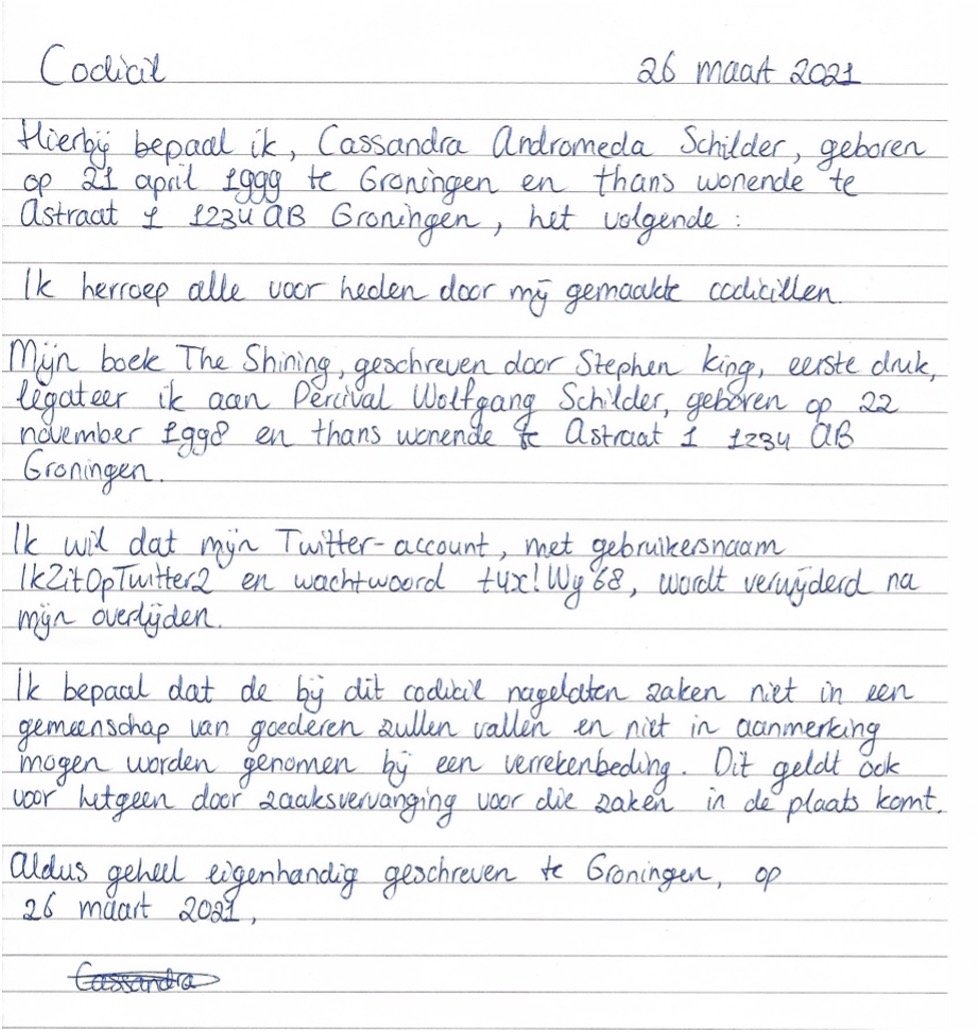 Codicil 26 maart 2021
Hierbij bepaal ik, Cassandra Andromeda Schilder, geboren
op 21 april 1999 te Groningen en thans wonende te
Astraat 1 1234 AB Groningen, het volgende:
Ik herroep alle voor heden door mij gemaakte codicillen.
Mijn boek The Shining, geschreven door Stephen King, eerste druk,
legateer ik aan Percival Wolfgang Schilder, geboren op 22
november 1998 en thans wonende te Astraat 1 1234 AB
Groningen.
Ik wil dat mijn Twitter-account, met gebruikersnaam
IkZitOpTwitter2 en wachtwoord tux!Wy68, wordt verwijderd na
mijn overlijden.
Ik bepaal dat de bij dit codicil nagelaten zaken niet in een
gemeenschap van goederen zullen vallen en niet in aanmerking
mogen worden genomen bij een verrekenbeding. Dit geldt ook
voor hetgeen door zaaksvervanging voor die zaken in de plaats komt.
Aldus geheel eigenhandig geschreven te Groningen, op
26 maart 2021,
Cassandra